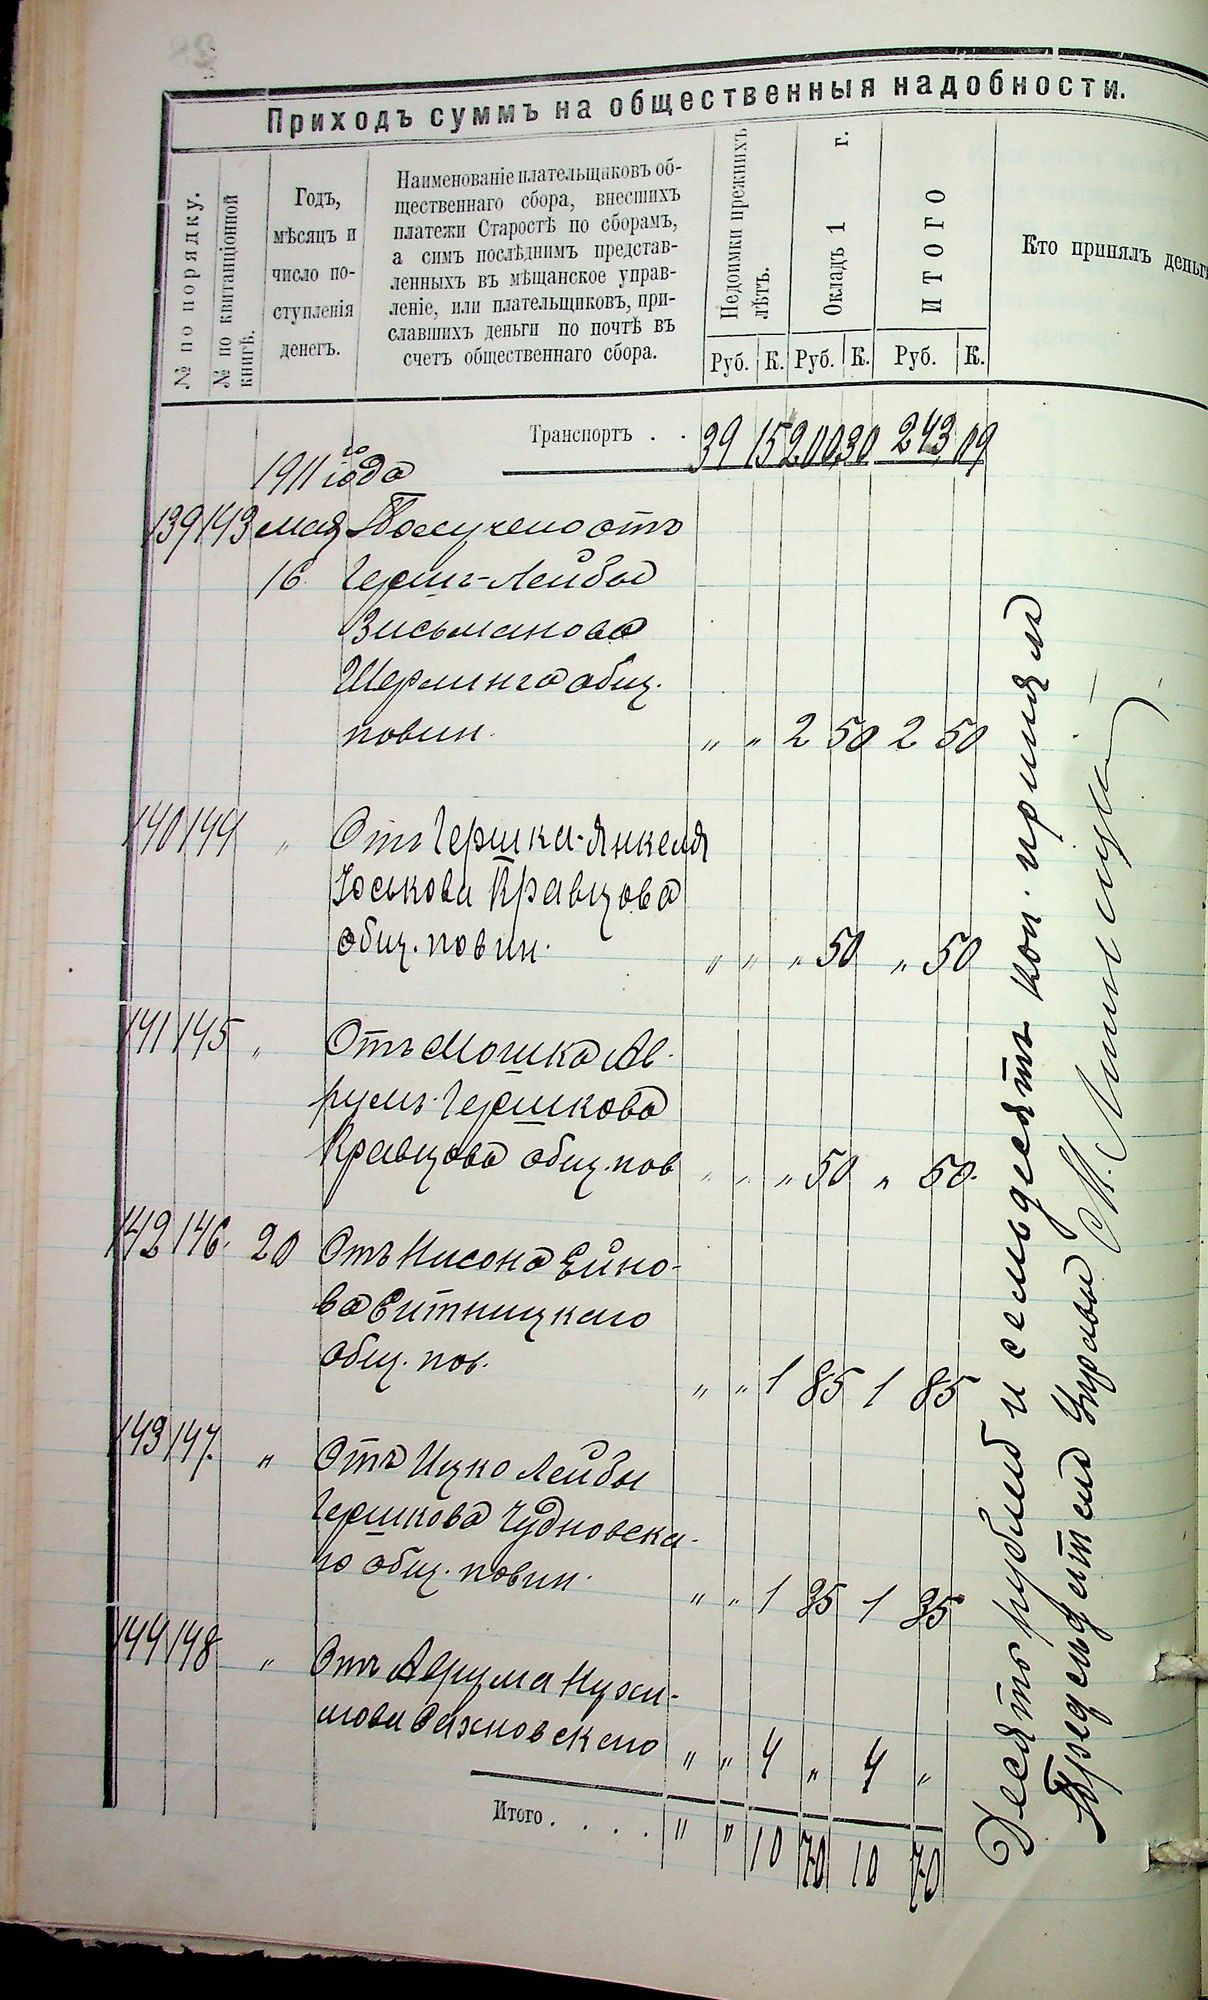 Приходъ суммъ на общественныя надобности.
№ по порядку.
№ по квитанціонной
книгѣ.
Годъ,
мѣсяцъ и
число по-
ступленія
денегъ.
Наименованіе плательщиковъ об-
щественнаго сбора, внесшихъ
платежи Старостѣ по сборамъ,
а симъ послѣднимъ представ-
ленныхъ въ мѣщанское управ-
леніе, или плательщиковъ, при-
славшихъ деньги по почтѣ въ
счетъ общественнаго сбора.
Недоимки прежнихъ
лѣтъ.
Окладъ 1 г.
ИТОГО
Кто принялъ деньги
Руб. К. Руб. К. Руб. К.
Транспортъ . . 39 15 200 30 243 09
1911 го года
139 143 мая Получено отъ
16 Герш-Лейбы
Зисьманова
Шерлинга общ.
повин. " " 2 50 2 50
140 144 " Отъ Гершка-Янкеля
Юськова Кравцова
общ. повин. " " " 50 " 50
141 145 " Отъ Мошка Ав-
румъ-Гершкова
Кравцова общ. пов " " " 50 " 50.
142 146. 20 Отъ Нисона Ейно-
ва Витницкаго
общ. пов. " " 1 85 1 85
143 147. " Отъ Ицко Лейбы
Гершкова Чудновска-
го общ. повин. " " 1 35 1 35
144 148 " Отъ Аврума Нухи-
мова Вахновскаго " " 4 " 4 "
Итого . . . . " " 10 70 10 70
Десять рублей и семьдесятъ коп. принялъ
Предсѣдатель Управы М.